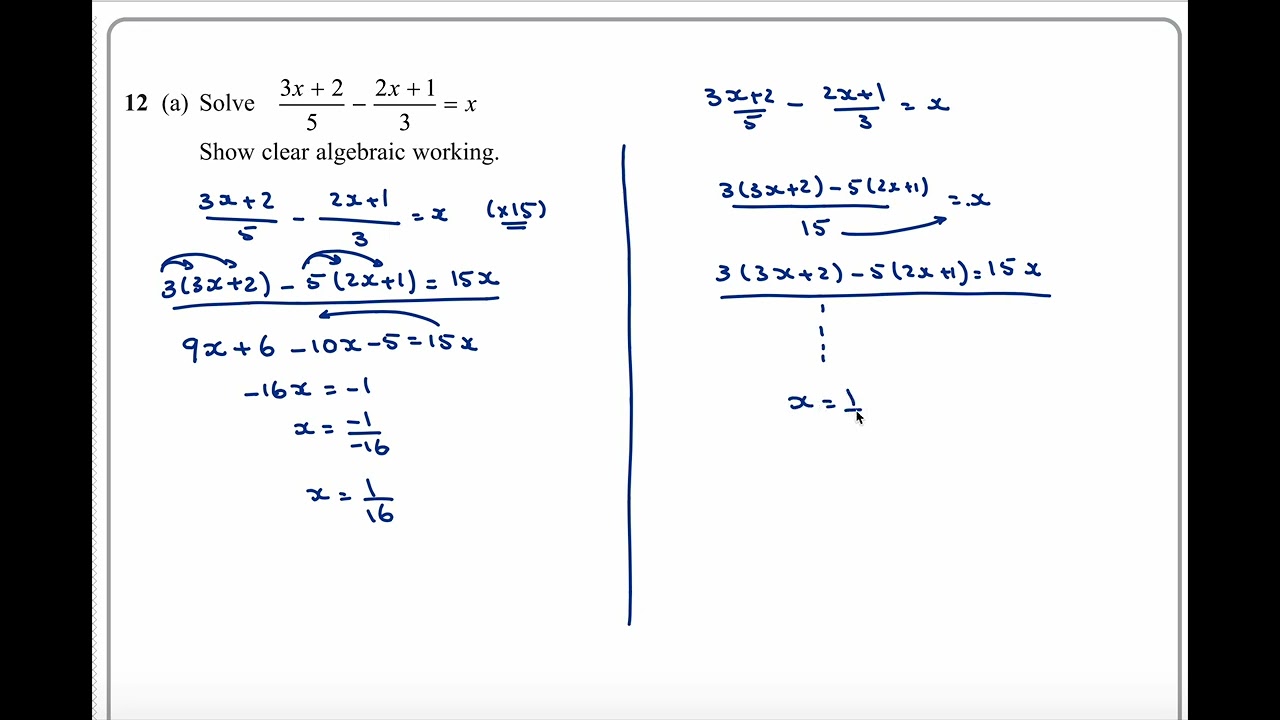 12 (a) Solve (3x + 2)/5 − (2x + 1)/3 = x
Show clear algebraic working.
(3x+2)/5 − (2x+1)/3 = x (×15)
3(3x+2) − 5(2x+1) = 15x
9x + 6 − 10x − 5 = 15x
−16x = −1
x = −1/−16
x = 1/16
(3x+2)/5 − (2x+1)/3 = x
(3(3x+2) − 5(2x+1))/15 = x
3(3x+2) − 5(2x+1) = 15x
x = 1/